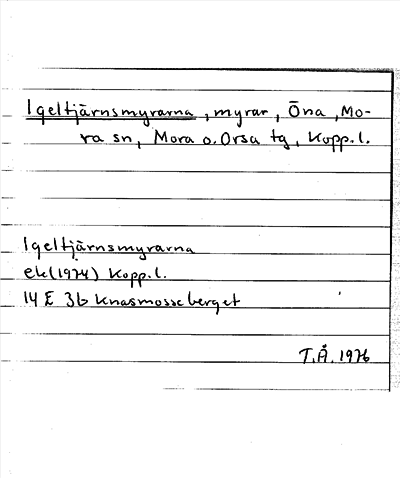 Igeltjärnsmyrarna, myrar, Öna, Mo-
ra sn, Mora o. Orsa tg, Kopp.l.
Igeltjärnsmyrarna
ek (1974) Kopp.l.
14 E 3b Knasmosseberget
T.Å. 1976